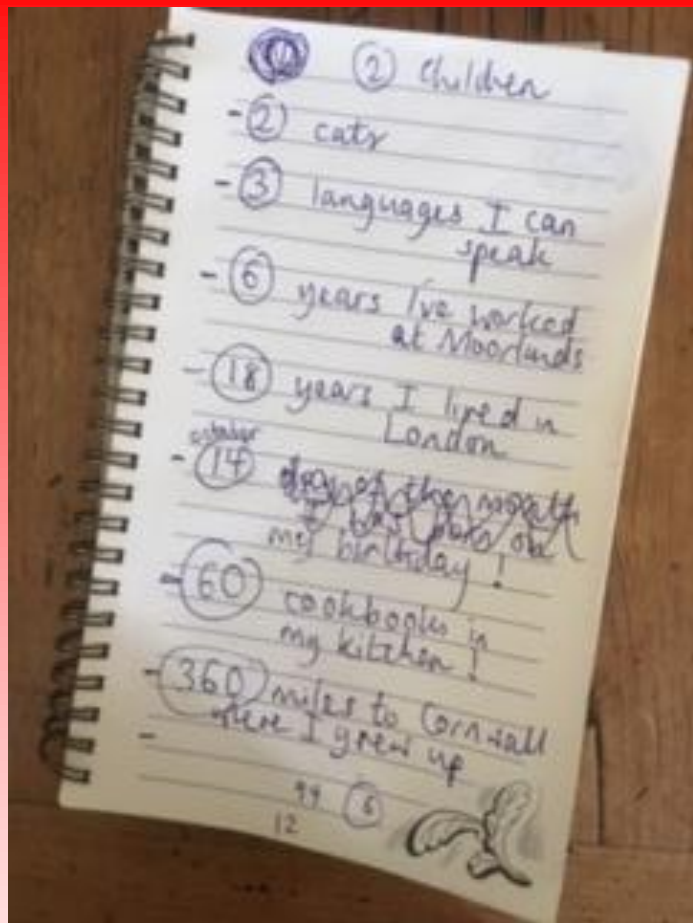 2 children
- 2 cats
- 3 languages I can
speak
- 6 years I've worked
at Moorlands
- 18 years I lived in
London
october
- 14 day of the month
I was born on
my birthday !
- 60 cookbooks in
my kitchen !
- 360 miles to Cornwall
where I grew up
-
99 6
12